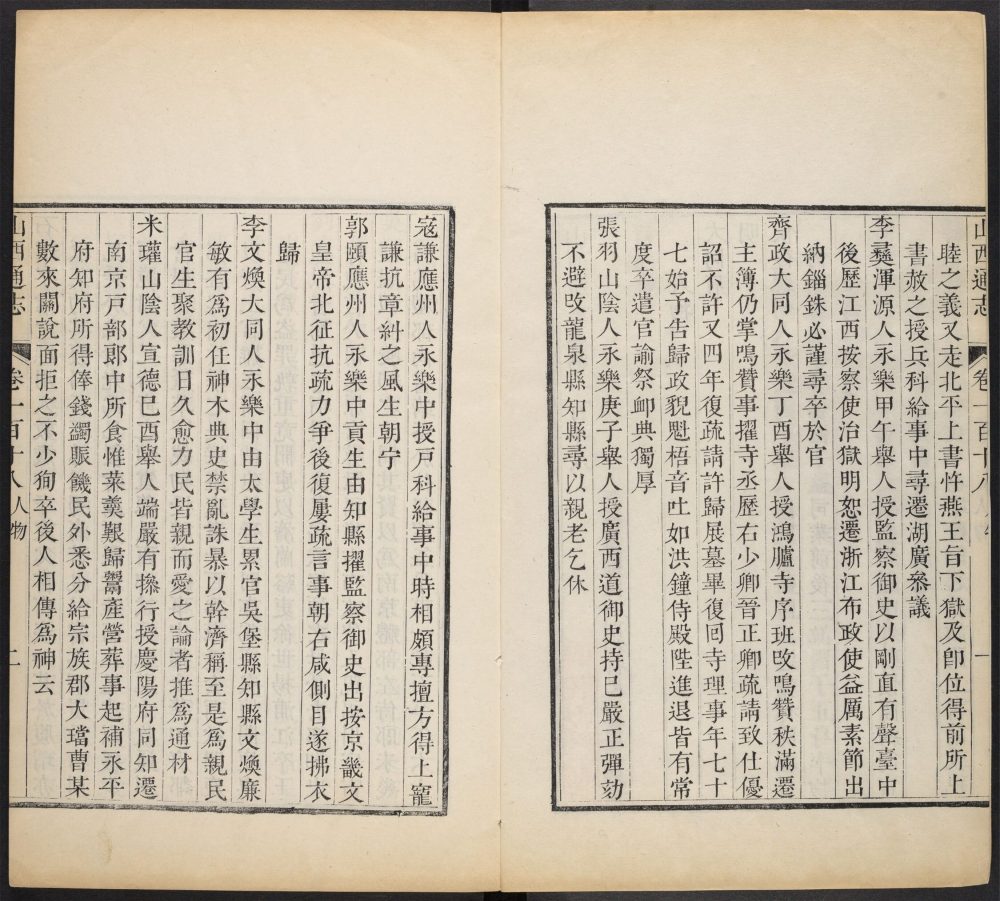 山西通志 卷一百十八 人物 一
睦之義又走北平上書忤燕王旨下獄及卽位得前所上
書赦之授兵科給事中尋遷湖廣叅議
李彛渾源人永樂甲午舉人授監察御史以剛直有聲臺中
後歷江西按察使治獄明恕遷浙江布政使益厲素節出
納錙銖必謹尋卒於官
齊政大同人永樂丁酉舉人授鴻臚寺序班改鳴贊秩滿遷
主簿仍掌鳴贊事擢寺丞歷右少卿晉正卿疏請致仕優
詔不許又四年復疏請許歸展墓畢復回寺理事年七十
七始予告歸政貌魁梧音吐如洪鐘侍殿陛進退皆有常
度卒遣官諭祭卹典獨厚
張羽山陰人永樂庚子舉人授廣西道御史持已嚴正彈劾
不避改龍泉縣知縣尋以親老乞休
宼謙應州人永樂中授戸科給事中時相頗專擅方得上寵
謙抗章糾之風生朝宁
郭頤應州人永樂中貢生由知縣擢監察御史出按京畿文
皇帝北征抗疏力爭後復屢疏言事朝右咸側目遂拂衣
歸
李文煥大同人永樂中由太學生累官吳堡縣知縣文煥廉
敏有爲初任神木典史禁亂誅暴以幹濟稱至是爲親民
官生聚教訓日久愈力民皆親而愛之論者推爲通材
米瓘山陰人宣德巳酉舉人端嚴有操行授慶陽府同知遷
南京戸部郞中所食惟菜羹艱歸鬻產營葬事起補永平
府知府所得俸錢蠲賑饑民外悉分給宗族郡大璫曹某
數來關說面拒之不少狥卒後人相傳爲神云
山西通志 卷一百十八 人物 二